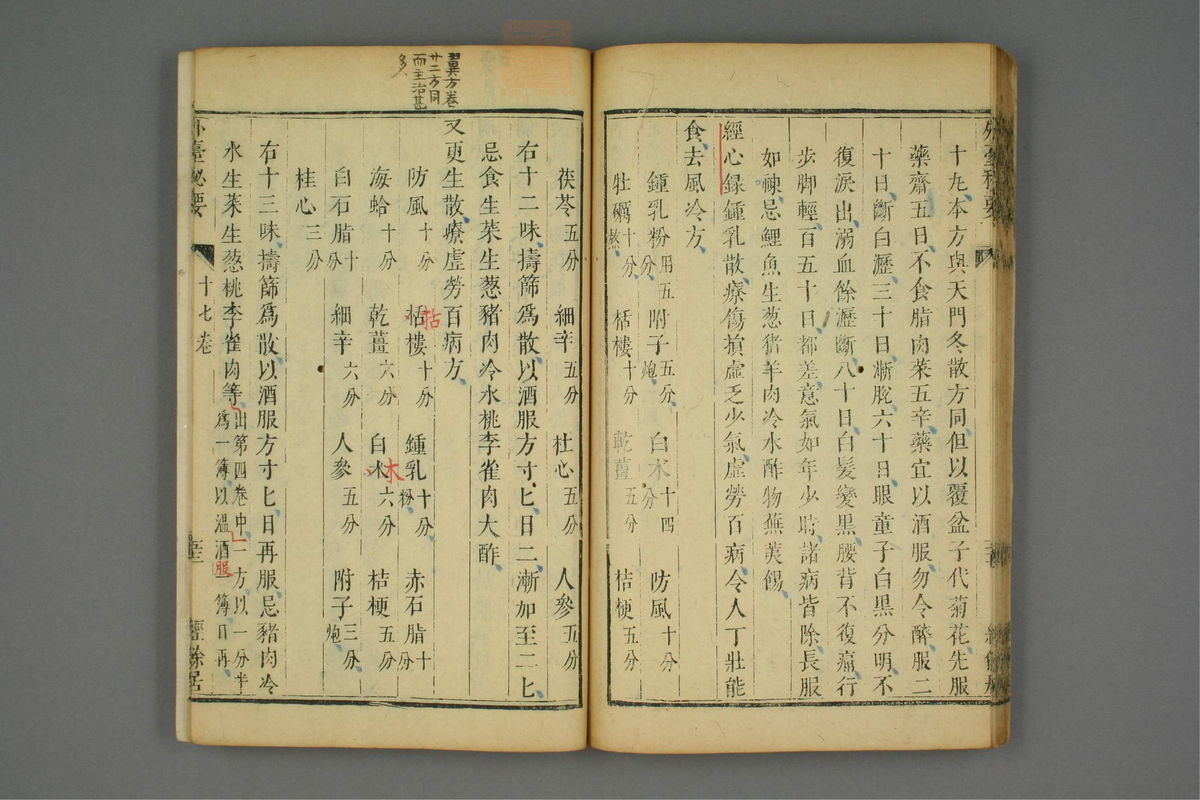 十九本方與天門冬散方同但以覆盆子代菊花先服
藥齋五日不食脂肉菜五辛藥宜以酒服勿令醉服二
十日斷白瀝三十日漸脫六十日眼童子白黑分明不
復淚出溺血餘瀝斷八十日白髮變黑腰背不復痛行
步脚輕百五十日都差意氣如年少時諸病皆除長服
如神忌鯉魚生葱猪羊肉冷水酢物蕪荑餳
經心録鍾乳散療傷損虛乏少氣虛勞百病令人丁壯能
食去風冷方
鍾乳粉用五分 附子五分炮 白朮十四分 防風十分
牡礪十分熬 栝樓十分 乾薑五分 桔梗五分
茯苓五分 細辛五分 杜心五分 人參五分
右十二味擣篩爲散以酒服方寸匕日二漸加至二匕
忌食生菜生葱豬肉冷水桃李雀肉大酢
又更生散療虛勞百病方
防風十分 栝樓十分 鍾乳十分粉 赤石脂十分
海蛤十分 乾薑六分 白朮六分 桔梗五分
白石脂十分 細辛六分 人參五分 附子三分炮
桂心三分
右十三味擣篩爲散以酒服方寸匕日再服忌豬肉冷
水生菜生葱桃李雀肉等出第四卷中一方以一分半
爲一簿以溫酒服一簿日再
翼方卷
廿二方同
而主治甚
多
栝
朮
外臺秘要
十七卷
經餘居